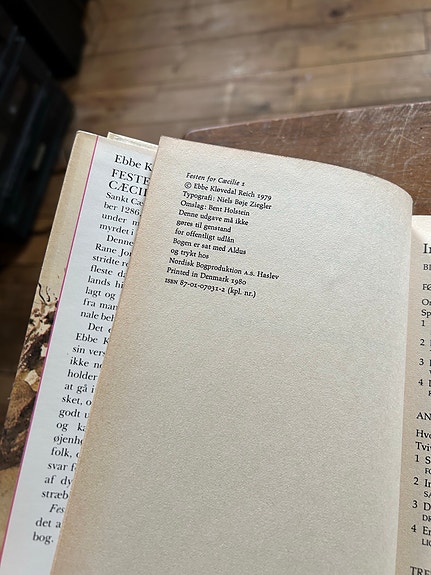 Festen for Cæcilie 1
© Ebbe Kløvedal Reich 1979
Typografi: Niels Bøje Ziegler
Omslag: Bent Holstein
Denne udgave må ikke
gøres til genstand
for offentligt udlån
Bogen er sat med Aldus
og trykt hos
Nordisk Bogproduktion A.S. Haslev
Printed in Denmark 1980
ISBN 87-01-07031-2 (kpl. nr.)
Ebbe K
FESTE
CÆCIL
Sankt Cæ
ber 1286
under m
myrdet i
Denne
Rane Jon
stridte r
fleste da
lands hi
lagt og
fra man
nale beh
Det e
Ebbe K
sin vers
ikke no
holder
at gå i
sket, o
godt u
og ka
øjenhe
folk, o
svar f
af dy
stræb
Fes
det a
bog.
1
2
3
4
AN
Hvo
1 S
2 In
3 D
4 En
TRE